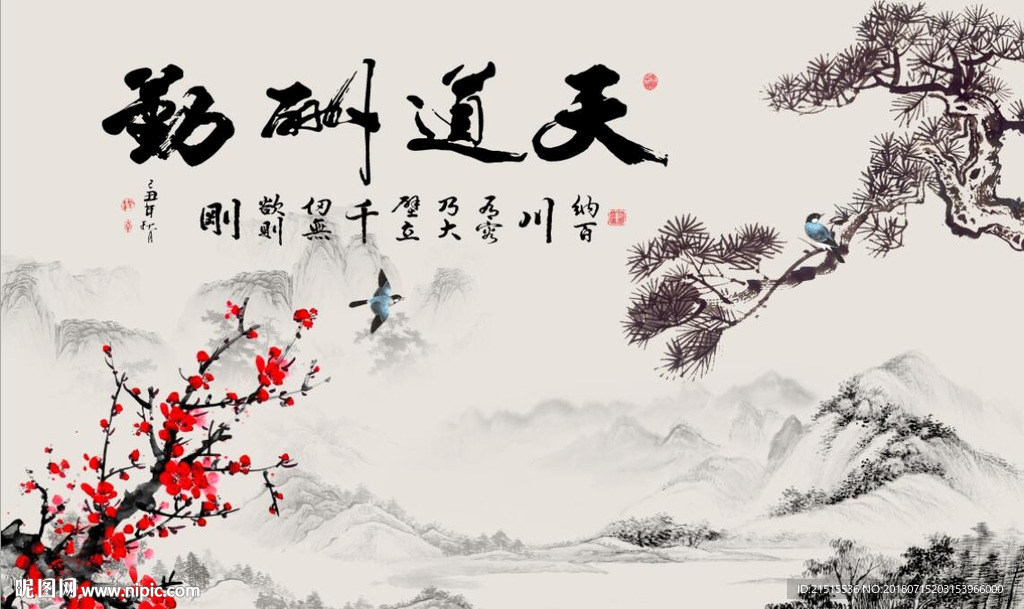 天道酬勤
纳百川有容乃大壁立千仞無欲則剛
己丑年秋月
昵图网 www.nipic.com
ID:21515536 NO:20180715203153966000